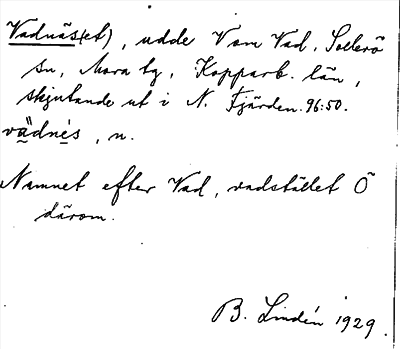 Vadnäs(et), udde V om Vad, Sollerö
sn, Mora tg, Kopparb. län,
skjutande ut i N. Fjärden. 96:50.
vädnés, n.
Namnet efter Vad, vadstället Ö
därom.
B. Lindén 1929.